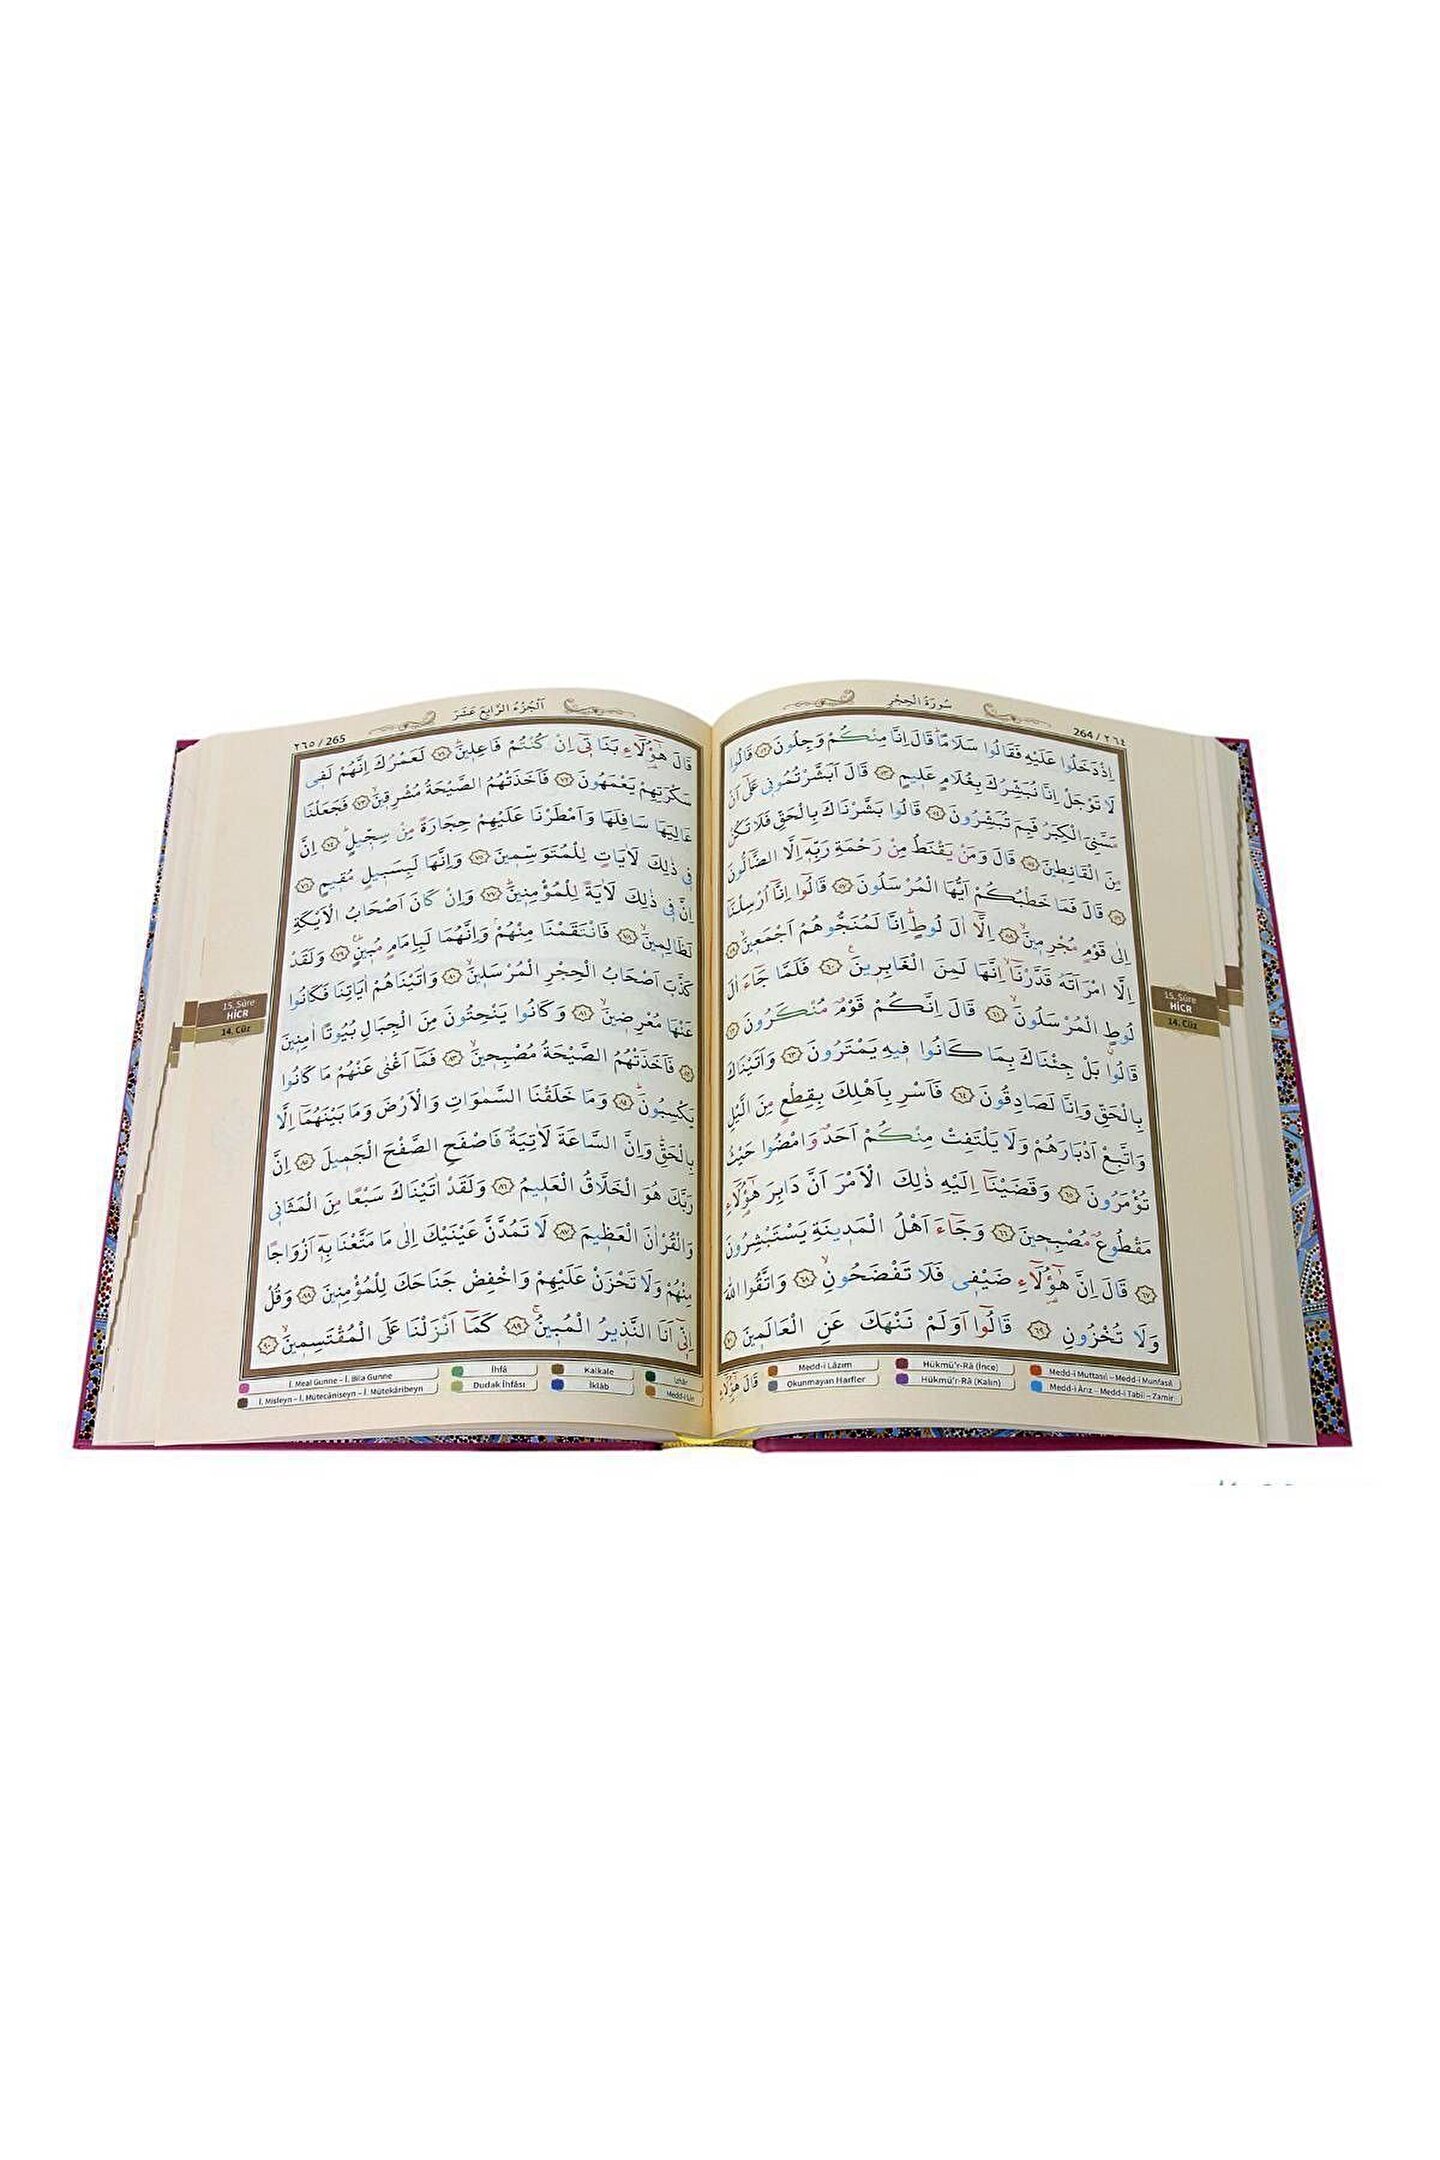 264 / ٢٦٤
سُورَةُ الْحِجْرِ
اِذْ دَخَلُوا عَلَيْهِ فَقَالُوا سَلَامًاۜ قَالَ اِنَّا مِنْكُمْ وَجِلُونَ ﴿٥٢﴾ قَالُوا
لَا تَوْجَلْ اِنَّا نُبَشِّرُكَ بِغُلَامٍ عَلٖيمٍ ﴿٥٣﴾ قَالَ اَبَشَّرْتُمُونٖي عَلٰٓى اَنْ
مَسَّنِيَ الْكِبَرُ فَبِمَ تُبَشِّرُونَ ﴿٥٤﴾ قَالُوا بَشَّرْنَاكَ بِالْحَقِّ فَلَا تَكُنْ
مِنَ الْقَانِطٖينَ ﴿٥٥﴾ قَالَ وَمَنْ يَقْنَطُ مِنْ رَحْمَةِ رَبِّهٖٓ اِلَّا الضَّٓالُّونَ
﴿٥٦﴾ قَالَ فَمَا خَطْبُكُمْ اَيُّهَا الْمُرْسَلُونَ ﴿٥٧﴾ قَالُٓوا اِنَّٓا اُرْسِلْنَٓا
اِلٰى قَوْمٍ مُجْرِمٖينَۙ ﴿٥٨﴾ اِلَّٓا اٰلَ لُوطٍۜ اِنَّا لَمُنَجُّوهُمْ اَجْمَعٖينَۙ ﴿٥٩﴾
اِلَّا امْرَاَتَهُ قَدَّرْنَٓاۙ اِنَّهَا لَمِنَ الْغَابِرٖينَ۟ ﴿٦٠﴾ فَلَمَّا جَٓاءَ اٰلَ
لُوطٍ الْمُرْسَلُونَۙ ﴿٦١﴾ قَالَ اِنَّكُمْ قَوْمٌ مُنْكَرُونَ ﴿٦٢﴾
قَالُوا بَلْ جِئْنَاكَ بِمَا كَانُوا فٖيهِ يَمْتَرُونَ ﴿٦٣﴾ وَاَتَيْنَاكَ
بِالْحَقِّ وَاِنَّا لَصَادِقُونَ ﴿٦٤﴾ فَاَسْرِ بِاَهْلِكَ بِقِطْعٍ مِنَ الَّيْلِ
وَاتَّبِعْ اَدْبَارَهُمْ وَلَا يَلْتَفِتْ مِنْكُمْ اَحَدٌ وَامْضُوا حَيْثُ
تُؤْمَرُونَ ﴿٦٥﴾ وَقَضَيْنَٓا اِلَيْهِ ذٰلِكَ الْاَمْرَ اَنَّ دَابِرَ هٰٓؤُ۬لَٓاءِ
مَقْطُوعٌ مُصْبِحٖينَ ﴿٦٦﴾ وَجَٓاءَ اَهْلُ الْمَدٖينَةِ يَسْتَبْشِرُونَ
﴿٦٧﴾ قَالَ اِنَّ هٰٓؤُ۬لَٓاءِ ضَيْفٖي فَلَا تَفْضَحُونِۙ ﴿٦٨﴾ وَاتَّقُوا اللّٰهَ
وَلَا تُخْزُونِ ﴿٦٩﴾ قَالُٓوا اَوَلَمْ نَنْهَكَ عَنِ الْعَالَمٖينَ ﴿٧٠﴾
قَالَ هٰٓؤُ۬لَٓاءِ
Medd-i Lâzım
Hükmü'r-Râ (İnce)
Medd-i Muttasıl – Medd-i Munfasıl
Okunmayan Harfler
Hükmü'r-Râ (Kalın)
Medd-i Ârız – Medd-i Tabiî – Zamir
15. Sûre
HİCR
14. Cüz
اَلْجُزْءُ الرَّابِعَ عَشَرَ
٢٦٥ / 265
قَالَ هٰٓؤُ۬لَٓاءِ بَنَاتٖٓي اِنْ كُنْتُمْ فَاعِلٖينَۜ ﴿٧١﴾ لَعَمْرُكَ اِنَّهُمْ لَفٖي
سَكْرَتِهِمْ يَعْمَهُونَ ﴿٧٢﴾ فَاَخَذَتْهُمُ الصَّيْحَةُ مُشْرِقٖينَۙ ﴿٧٣﴾ فَجَعَلْنَا
عَالِيَهَا سَافِلَهَا وَاَمْطَرْنَا عَلَيْهِمْ حِجَارَةً مِنْ سِجّٖيلٍۜ ﴿٧٤﴾ اِنَّ
فٖي ذٰلِكَ لَاٰيَاتٍ لِلْمُتَوَسِّمٖينَ ﴿٧٥﴾ وَاِنَّهَا لَبِسَبٖيلٍ مُقٖيمٍ ﴿٧٦﴾
اِنَّ فٖي ذٰلِكَ لَاٰيَةً لِلْمُؤْمِنٖينَۜ ﴿٧٧﴾ وَاِنْ كَانَ اَصْحَابُ الْاَيْكَةِ
لَظَالِمٖينَۙ ﴿٧٨﴾ فَانْتَقَمْنَا مِنْهُمْۢ وَاِنَّهُمَا لَبِاِمَامٍ مُبٖينٍۜ۟ ﴿٧٩﴾ وَلَقَدْ
كَذَّبَ اَصْحَابُ الْحِجْرِ الْمُرْسَلٖينَۙ ﴿٨٠﴾ وَاٰتَيْنَاهُمْ اٰيَاتِنَا فَكَانُوا
عَنْهَا مُعْرِضٖينَۙ ﴿٨١﴾ وَكَانُوا يَنْحِتُونَ مِنَ الْجِبَالِ بُيُوتًا اٰمِنٖينَ
﴿٨٢﴾ فَاَخَذَتْهُمُ الصَّيْحَةُ مُصْبِحٖينَۙ ﴿٨٣﴾ فَمَٓا اَغْنٰى عَنْهُمْ مَا كَانُوا
يَكْسِبُونَۜ ﴿٨٤﴾ وَمَا خَلَقْنَا السَّمٰوَاتِ وَالْاَرْضَ وَمَا بَيْنَهُمَٓا اِلَّا
بِالْحَقِّۜ وَاِنَّ السَّاعَةَ لَاٰتِيَةٌ فَاصْفَحِ الصَّفْحَ الْجَمٖيلَ ﴿٨٥﴾ اِنَّ
رَبَّكَ هُوَ الْخَلَّاقُ الْعَلٖيمُ ﴿٨٦﴾ وَلَقَدْ اٰتَيْنَاكَ سَبْعًا مِنَ الْمَثَانٖي
وَالْقُرْاٰنَ الْعَظٖيمَ ﴿٨٧﴾ لَا تَمُدَّنَّ عَيْنَيْكَ اِلٰى مَا مَتَّعْنَا بِهٖٓ اَزْوَاجًا
مِنْهُمْ وَلَا تَحْزَنْ عَلَيْهِمْ وَاخْفِضْ جَنَاحَكَ لِلْمُؤْمِنٖينَ ﴿٨٨﴾ وَقُلْ
اِنّٖٓي اَنَا النَّذٖيرُ الْمُبٖينُۚ ﴿٨٩﴾ كَمَٓا اَنْزَلْنَا عَلَى الْمُقْتَسِمٖينَۙ ﴿٩٠﴾
İ. Meal Gunne – İ. Bila Gunne
İhfâ
Kalkale
İzhâr
İ. Misleyn – İ. Mütecâniseyn – İ. Mütekâribeyn
Dudak İhfâsı
İklâb
Medd-i Lîn
15. Sûre
HİCR
14. Cüz